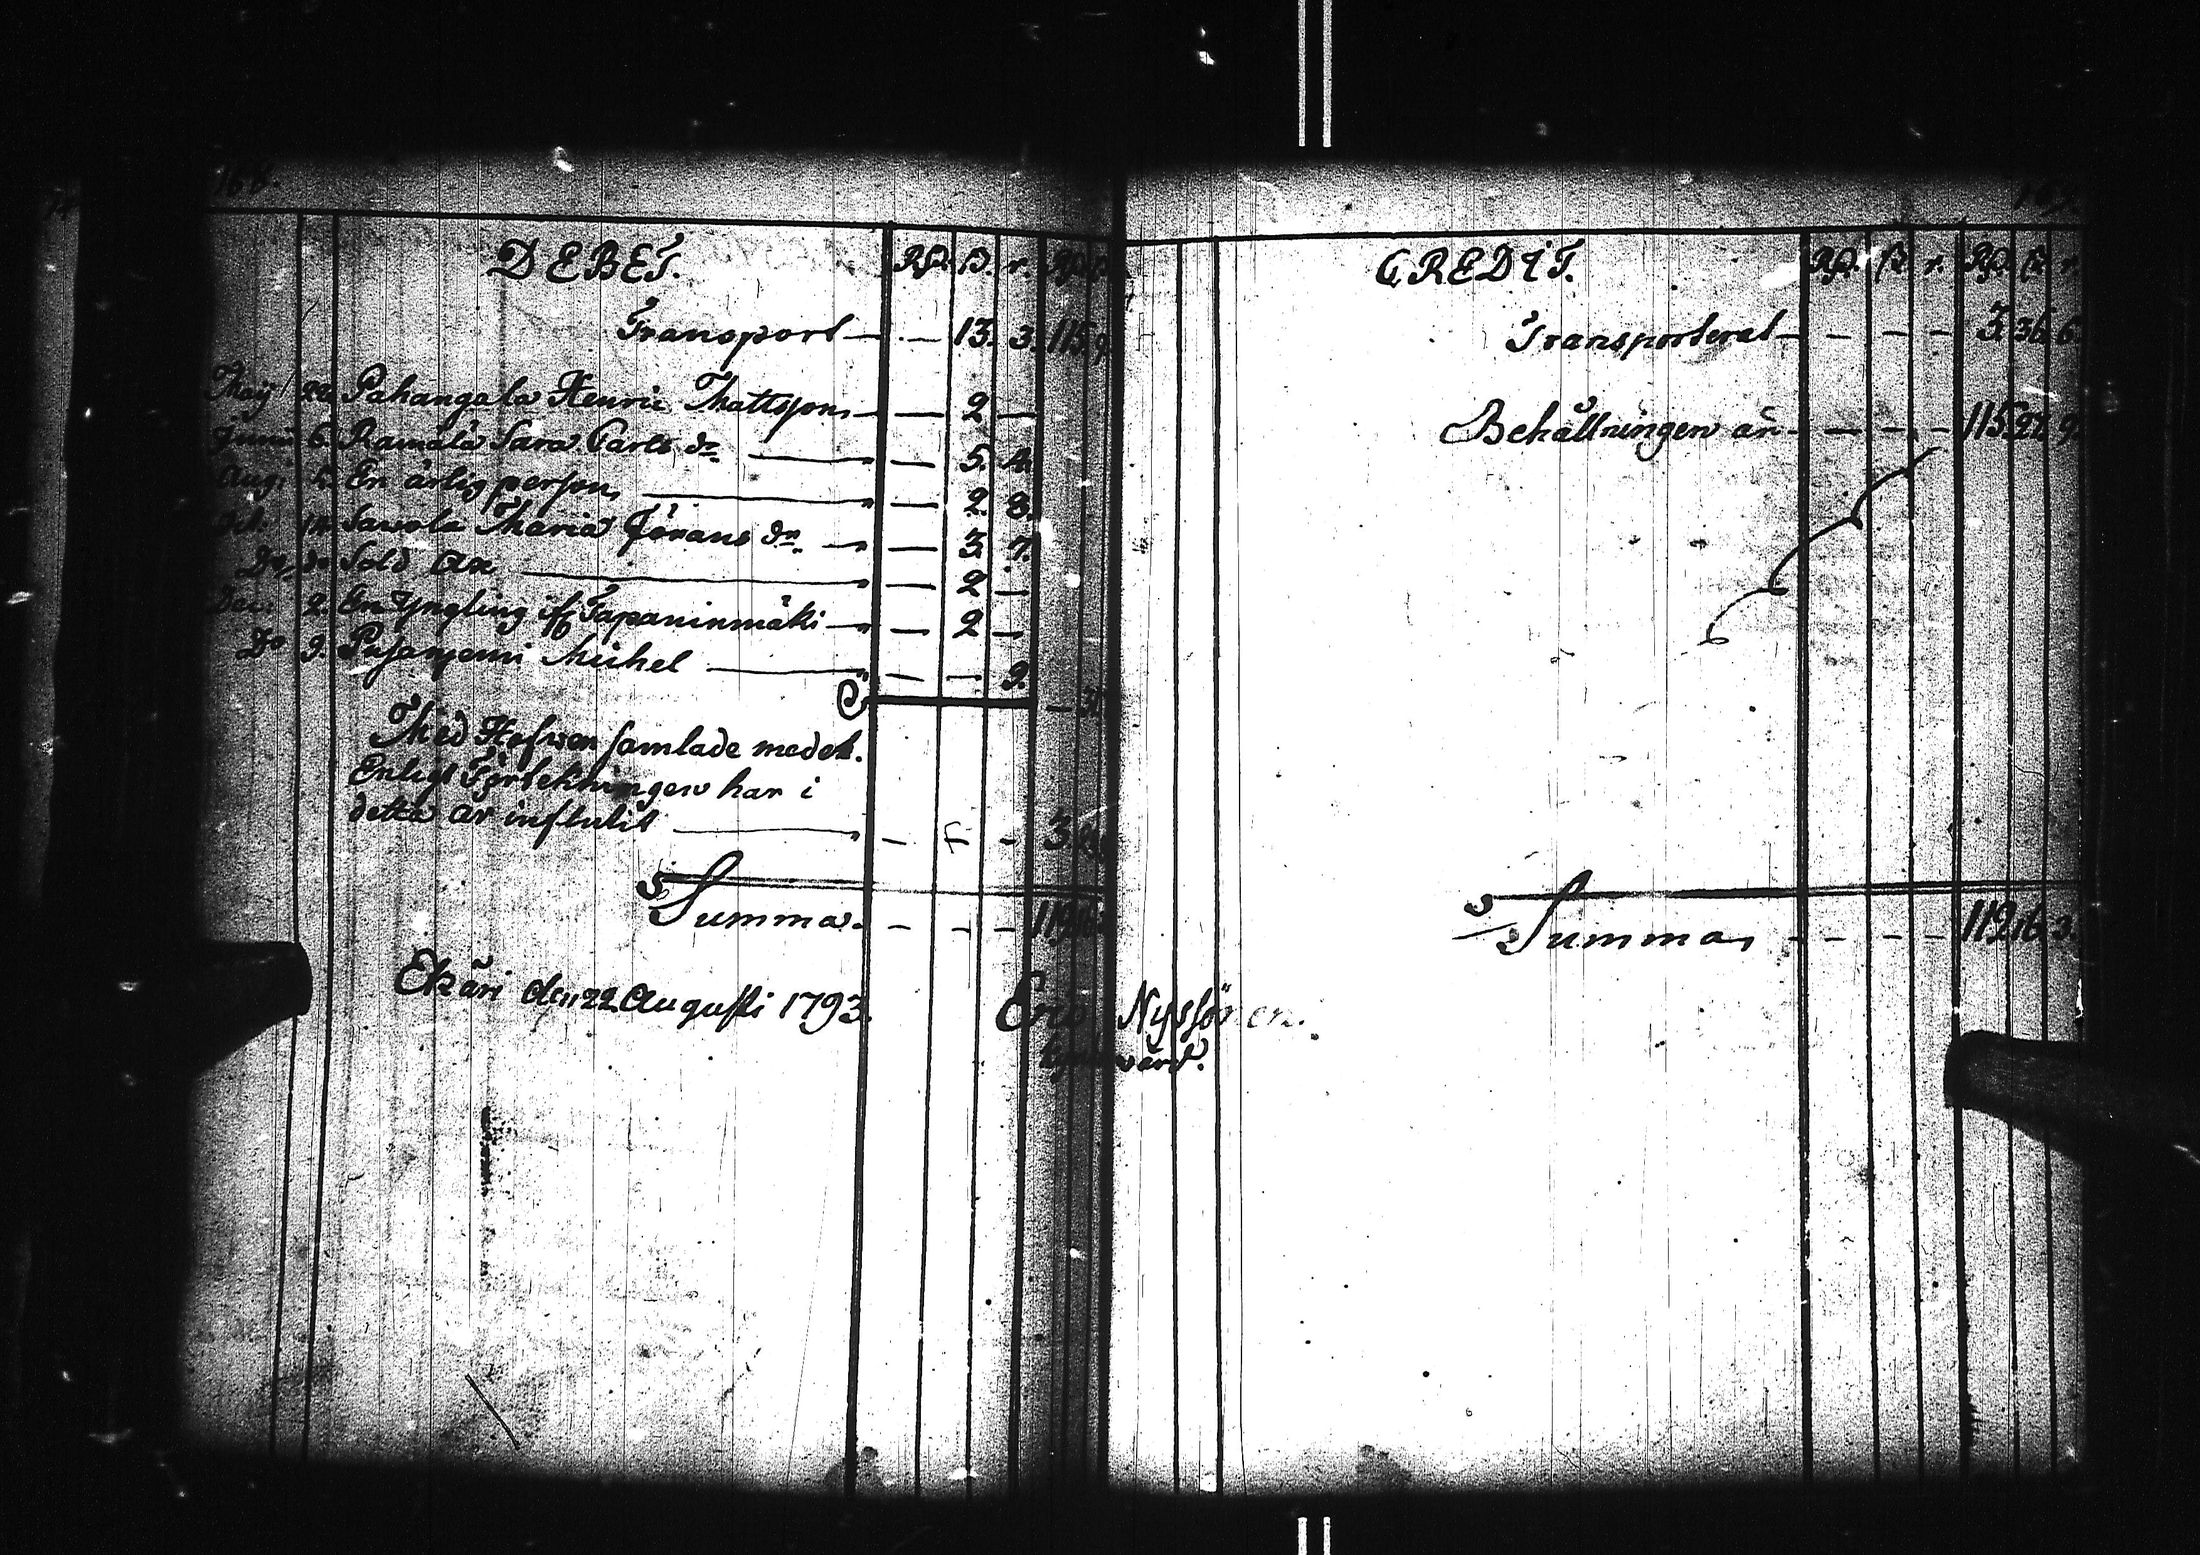 168.
DEBET. Rd. ß. r. Rd. ß.
Transport — — 13. 3. 115. 9.
Maÿ 22. Pahangala Henric Mattsson — — 2 —
Junii 6. Ramala Sara Carls dr. — — 5. 4.
Aug: 5. En ärlig person — — 2. 8.
Oct. 14. Savola Maria Jörans dr. — — 3. 7.
Do. do Sold Ax — — 2 —
Dec. 2. En Yngling iff. Tapaninmäki — — 2 —
Do 9. Pusaniemi Michel — — — 9.
Med Hofwen samlade medel.
Enligt Förtekningen har i
detta år influtit — — — 3
Summa. — — — 119.
Ekäri den 22 Augusti 1793. Eric Nyssönen.
värd.
169.
CREDIT. Rd. ß r. Rd. ß r.
Transporterat — — — — 3. 36. 6.
Behållningen är — — — — 115. 9.
Summa, — — — — 119. 16. 3.